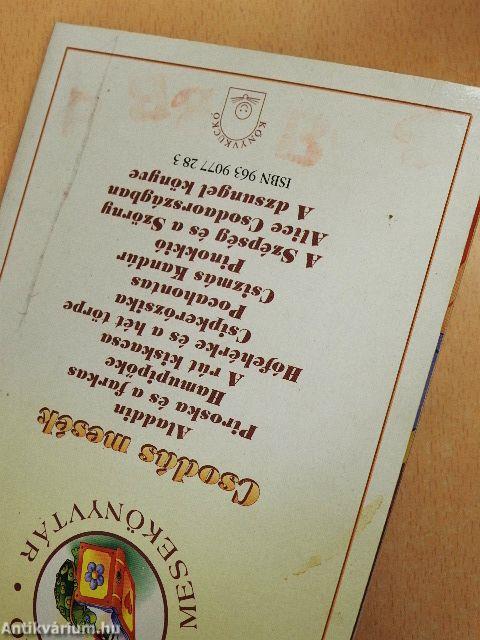 MESEKÖNYVTÁR
Csodás mesék
Aladdin
Piroska és a farkas
Hamupipőke
A rút kiskacsa
Hófehérke és a hét törpe
Csipkerózsika
Pocahontas
Csizmás Kandúr
Pinokkió
A Szépség és a Szörny
Alice Csodaországban
A dzsungel könyve
ISBN 963 9077 28 3
KÖNYVKUCKÓ
Antikvárium.hu